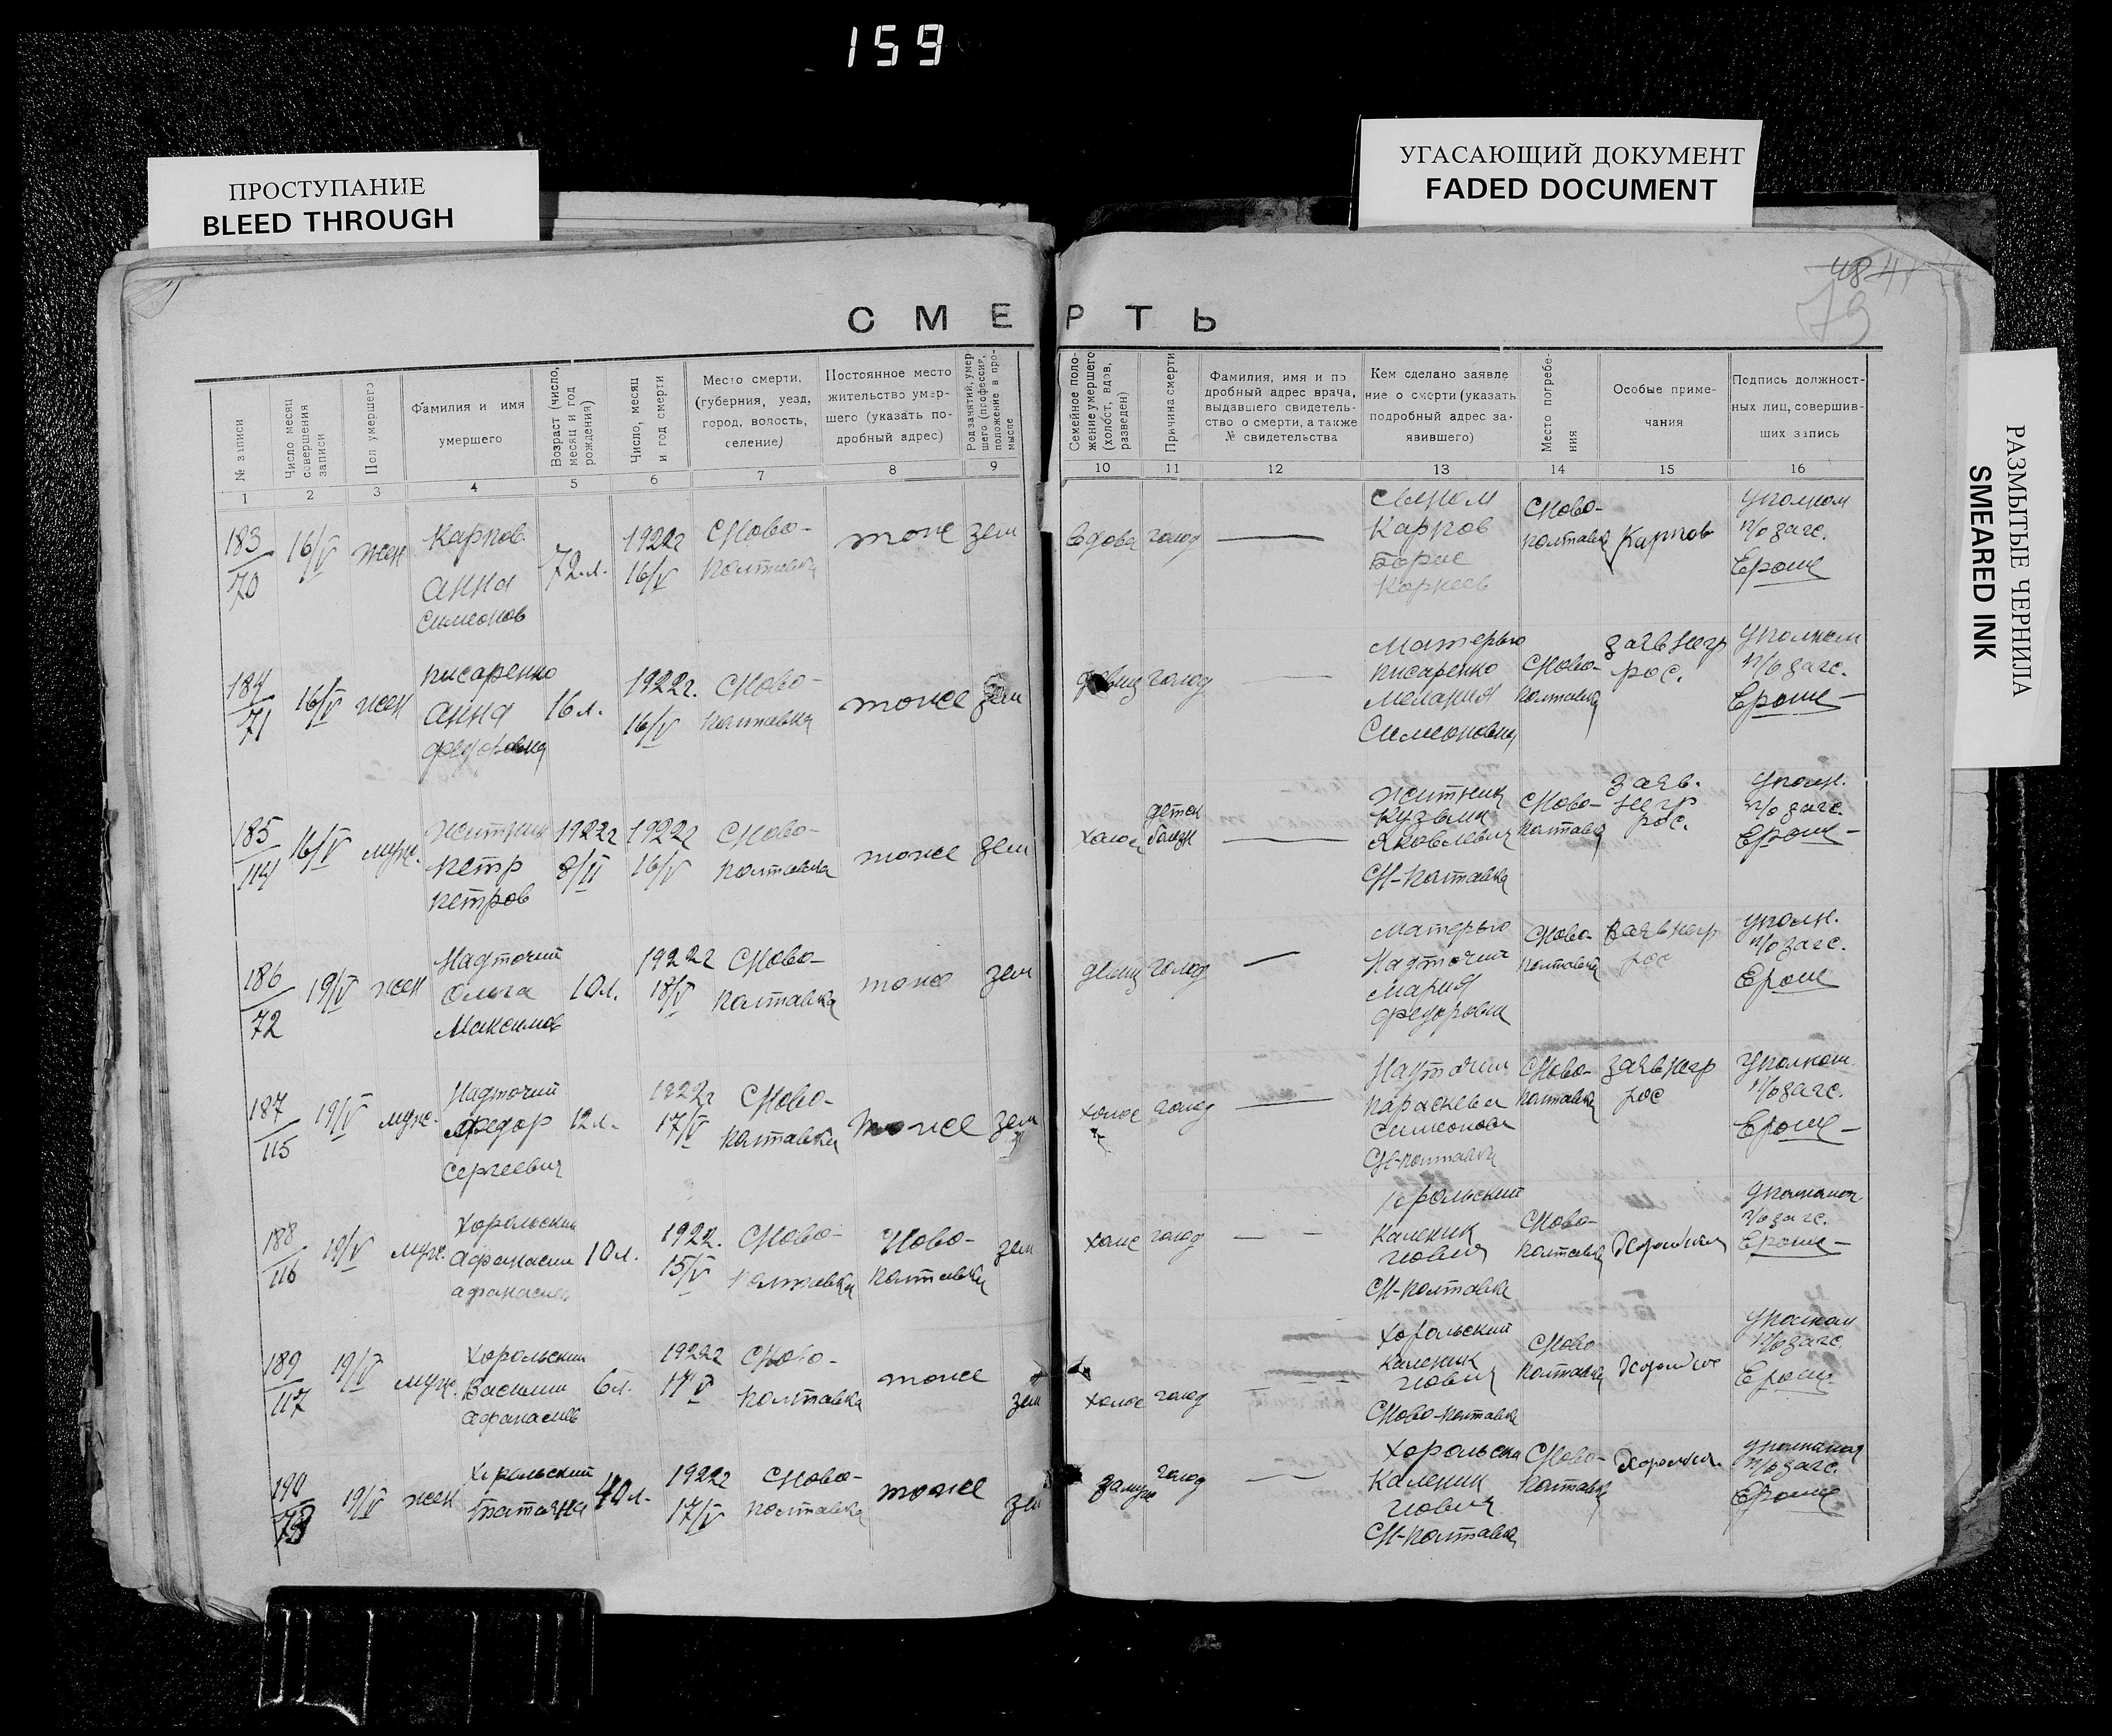 159
ПРОСТУПАНИЕ
BLEED THROUGH
УГАСАЮЩИЙ ДОКУМЕНТ
FADED DOCUMENT
РАЗМЫТЫЕ ЧЕРНИЛА
SMEARED INK
79
СМЕРТЬ
№ записи
Число месяц
совершения
записи
Пол умершего
Фамилия и имя
умершего
Возраст (число,
месяц и год
рождения)
Число, месяц
и год смерти
Место смерти,
(губерния, уезд,
город, волость,
селение)
Постоянное место
жительство умер-
шего (указать по-
дробный адрес)
Род занятий, умер-
шего (профессия,
положение в про-
мысле
Семейное поло-
жение умершего
(холост, вдов,
разведен)
Причина смерти
Фамилия, имя и по
дробный адрес врача,
выдавшего свидетель-
ство о смерти, а также
№ свидетельства
Кем сделано заявле
ние о смерти (указать
подробный адрес за-
явившего)
Место погребе-
ния
Особые приме-
чания
Подпись должност-
ных лиц, совершив-
ших запись
1 2 3 4 5 6 7 8 9 10 11 12 13 14 15 16
183
70
16/V
жен
Карпов
Анна
Симеонов
72 л.
1922 г
16/V
с Ново-
Полтавка
тоже
зем
вдова
голод
—
Сыном
Карпов
Борис
Корнеев
с Ново-
полтавка
Карпов
Уполном
п/о загс.
Ерош
184
71
16/V
жен
Писаренко
Анна
Федоровна
16 л.
1922 г.
16/V
с Ново-
Полтавка
тоже
зем
голод
—
Матерью
Писаренко
Мелания
Симеоновна
с Ново-
полтавка
заяв негр
рос.
Уполном
п/о загс.
Ерош
185
114
16/V
муж.
Житник
Петр
Петров
1922 г
8/II
1922 г
16/V
с Ново-
полтавка
тоже
зем
холос
детск
болезн
—
Житник
Кузьма
Яковлевич
с Н-Полтавка
с Ново-
полтавка
заяв.
негр
рос.
Уполн.
п/о загс.
Ерош
186
72
19/V
жен
Надточий
Ольга
Максимов
10 л.
1922 г
18/V
с Ново-
полтавка
тоже
зем
девиц
голод
—
Матерью
Надточий
Мария
Федоровна
с Ново-
полтавка
заяв негр
рос
Уполн.
п/о загс.
Ерош
187
115
19/V
муж.
Надточий
Федор
Сергеевич
12 л.
1922 г
17/V
с Ново-
полтавка
тоже
зем
холос
голод
—
Надточий
Параскева
Симеонова
с Н-полтавка
с Ново-
полтавка
заяв негр
рос
Уполном.
п/о загс.
Ерош
188
116
19/V
муж.
Хорольский
Афанасий
Афанасиев
10 л.
1922.
15/V
с Ново-
полтавка
Ново-
полтавка
зем
холос
голод
—
Хорольский
Каленик
с Н-полтавка
с Ново-
полтавка
Хорольский
Уполном
п/о загс.
Ерош
189
117
19/V
муж.
Хорольский
Василий
Афанасиев
6 л.
1922 г
17 V
с Ново-
полтавка
тоже
зем
холос
голод
—
Хорольский
Каленик
с Ново-полтавка
с Ново
полтавка
Уполном
п/о загс.
Ерош
190
73
19/V
жен
Хорольский
Татьяна
40 л.
1922 г
17/V
с Ново-
полтавка
тоже
зем
замуж
голод
—
Хорольский
Каленик
с Н-полтавка
с Ново-
полтавка
Уполном
п/о загс.
Ерош